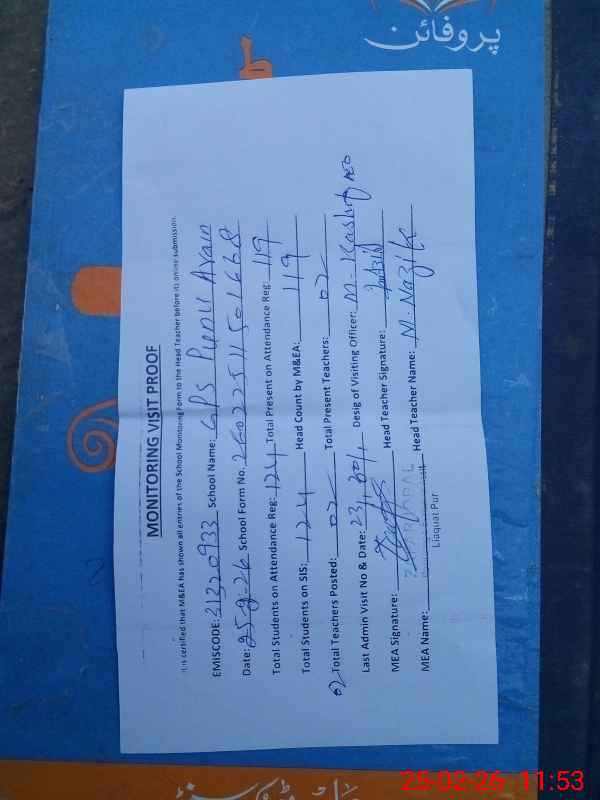 پروفائن
MONITORING VISIT PROOF
It is certified that M&EA has shown all entries of the School Monitoring Form to the Head Teacher before its online submission.
EMISCODE: 31320933 School Name: GPS Punu Avain
Date: 25-2-26 School Form No. 2602251150 1668
Total Students on Attendance Reg: 124 Total Present on Attendance Reg: 119
Total Students on SIS: 124 Head Count by M&EA: 119
Total Teachers Posted: 02 Total Present Teachers: 02
Last Admin Visit No & Date: Desig of Visiting Officer: M. Kashif AEO
MEA Signature: Head Teacher Signature:
MEA Name: Head Teacher Name: M. Nazik
Liaquat Pur
25-02-26 11:53